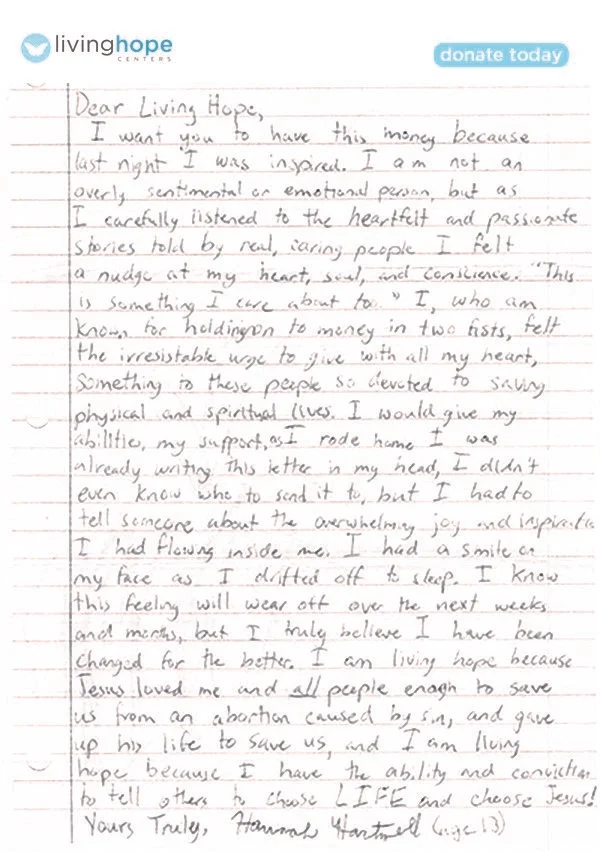 livinghope
CENTERS
donate today
Dear Living Hope,
I want you to have this money because
last night I was inspired. I am not an
overly sentimental or emotional person, but as
I carefully listened to the heartfelt and passionate
stories told by real, caring people I felt
a nudge at my heart, soul, and conscience. "This
is something I care about too." I, who am
known for holding on to money in two fists, felt
the irresistable urge to give with all my heart,
Something to these people so devoted to saving
physical and spiritual lives. I would give my
abilities, my support, as I rode home I was
already writing this letter in my head, I didn't
even know who to send it to, but I had to
tell someone about the overwhelming joy and inspiratio
I had flowing inside me. I had a smile on
my face as I drifted off to sleep. I know
this feeling will wear off over the next weeks
and months, but I truly believe I have been
changed for the better. I am living hope because
Jesus loved me and all people enogh to save
us from an abortion caused by sin, and gave
up his life to save us, and I am living
hope because I have the ability and conviction
to tell others to choose LIFE and choose Jesus!
Yours Truly, Hannah Hartnell (age 13)